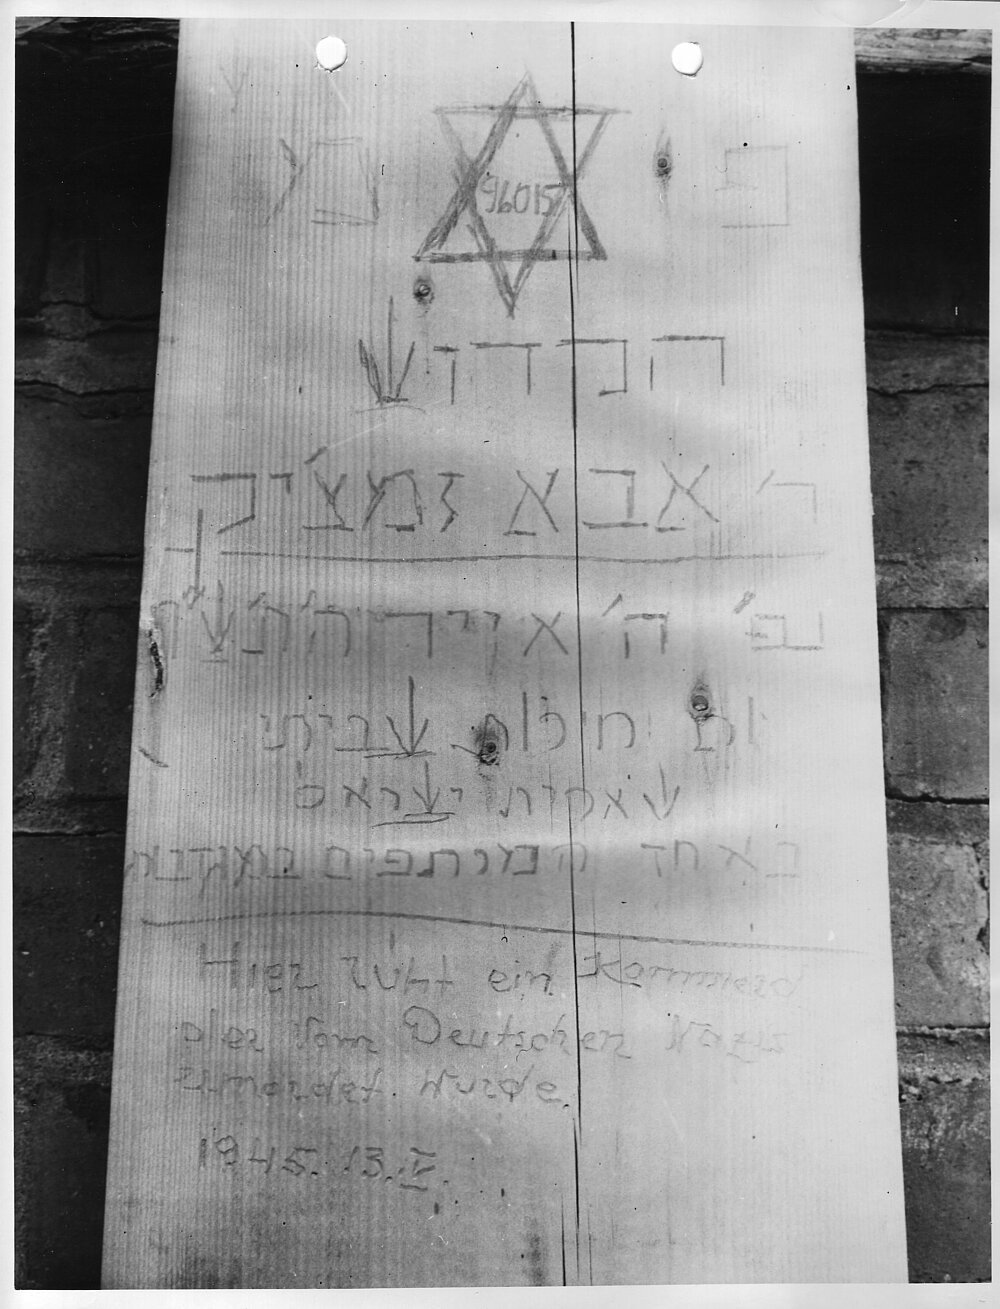 פ
96015
הקדוש
ר׳ אבא זמצ׳יק
נפ׳ ה׳ אייר ה׳תש״ה
שביתי
שארית ישראל
באחד המרתפים
Hier ruht ein Kammerad
der vom Deutschen Nazis
ermordet wurde.
1945. 13. V.